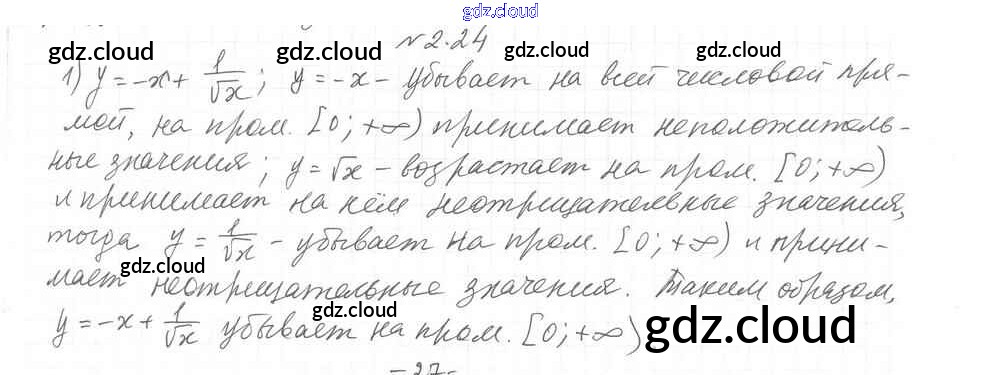 gdz.cloud
№2.24
gdz.cloud gdz.cloud
1) y = -x + 1/√x ; y = -x - убывает на всей числовой пря-
мой, на пром. [0; +∞) принимает неположитель-
ные значения; y = √x - возрастает на пром. [0; +∞)
и принимает на нём неотрицательные значения,
тогда y = 1/√x - убывает на пром. [0; +∞) и прини-
gdz.cloud
мает неотрицательные значения. Таким образом,
gdz.cloud
y = -x + 1/√x убывает на пром. [0; +∞)
gdz.cloud
-27-